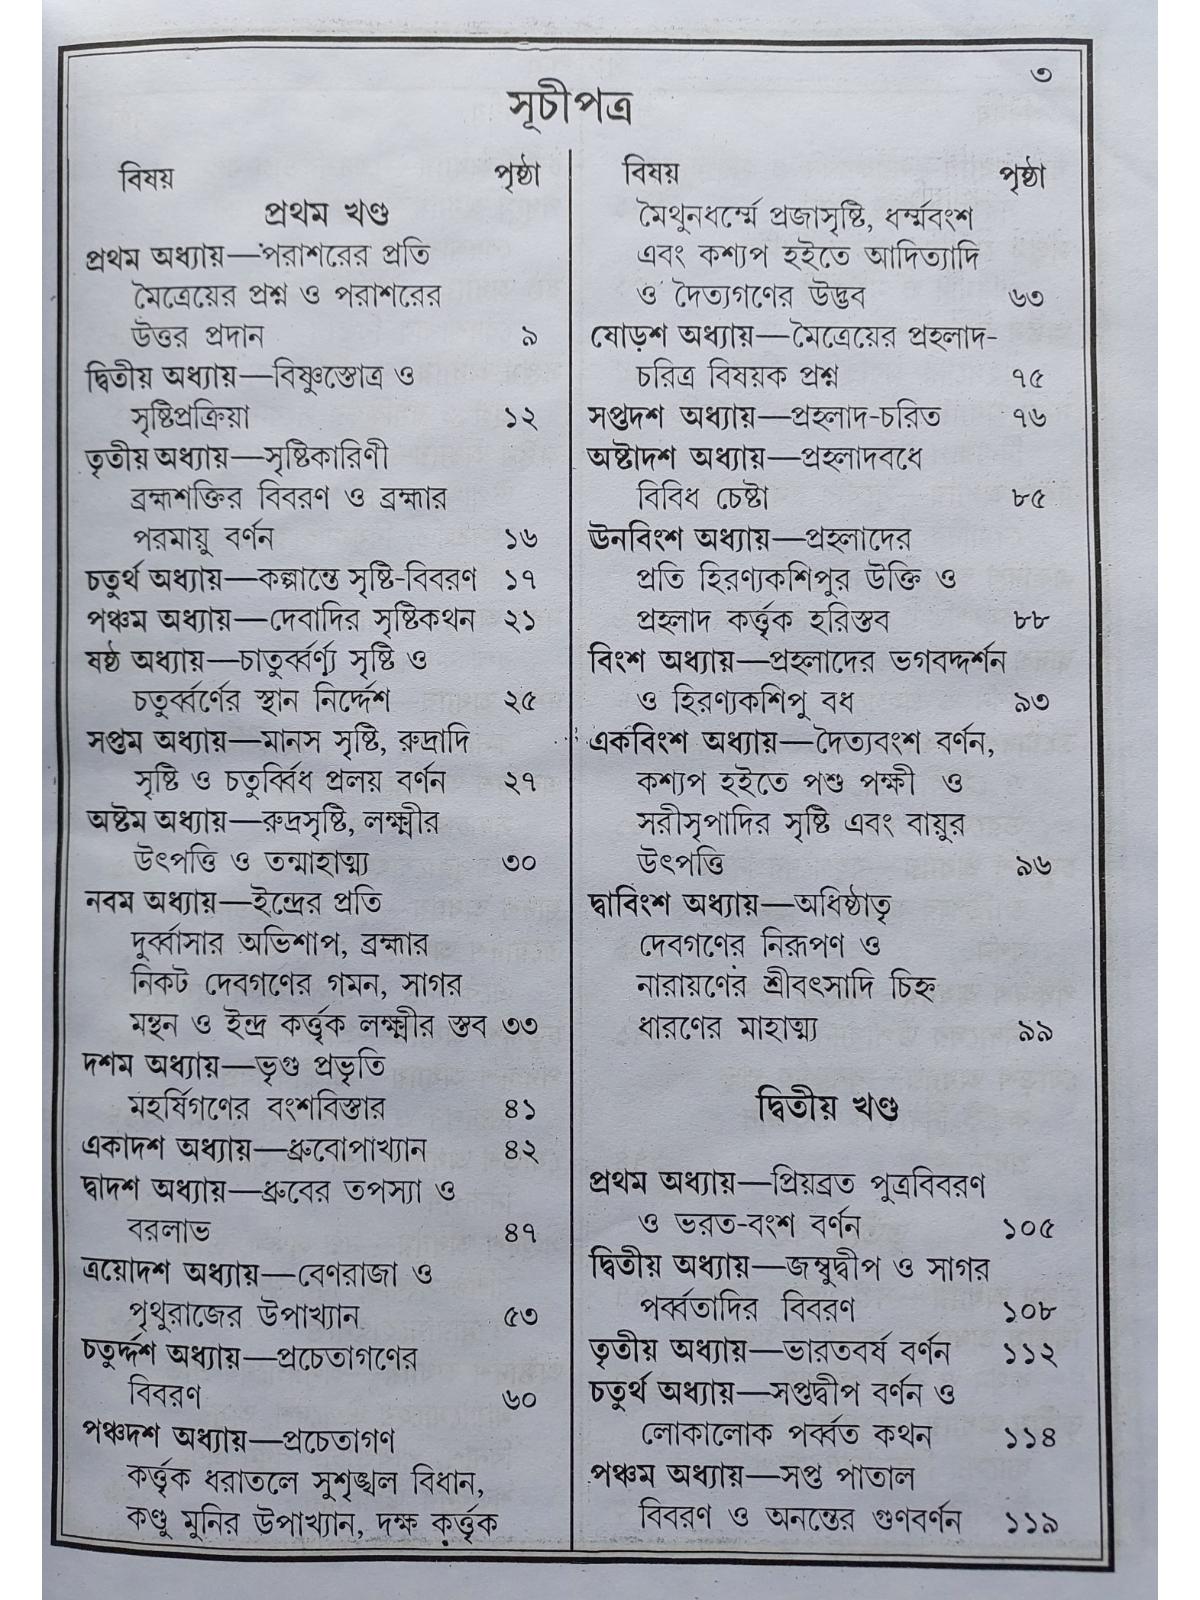 ৩
সূচীপত্র
বিষয় পৃষ্ঠা
প্রথম খণ্ড
প্রথম অধ্যায়—পরাশরের প্রতি
মৈত্রেয়ের প্রশ্ন ও পরাশরের
উত্তর প্রদান ৯
দ্বিতীয় অধ্যায়—বিষ্ণুস্তোত্র ও
সৃষ্টিপ্রক্রিয়া ১২
তৃতীয় অধ্যায়—সৃষ্টিকারিণী
ব্রহ্মশক্তির বিবরণ ও ব্রহ্মার
পরমায়ু বর্ণন ১৬
চতুর্থ অধ্যায়—কল্পান্তে সৃষ্টি-বিবরণ ১৭
পঞ্চম অধ্যায়—দেবাদির সৃষ্টিকথন ২১
ষষ্ঠ অধ্যায়—চাতুর্ব্বর্ণ্য সৃষ্টি ও
চতুর্ব্বর্ণের স্থান নির্দ্দেশ ২৫
সপ্তম অধ্যায়—মানস সৃষ্টি, রুদ্রাদি
সৃষ্টি ও চতুর্ব্বিধ প্রলয় বর্ণন ২৭
অষ্টম অধ্যায়—রুদ্রসৃষ্টি, লক্ষ্মীর
উৎপত্তি ও তন্মাহাত্ম্য ৩০
নবম অধ্যায়—ইন্দ্রের প্রতি
দুর্ব্বাসার অভিশাপ, ব্রহ্মার
নিকট দেবগণের গমন, সাগর
মন্থন ও ইন্দ্র কর্ত্তৃক লক্ষ্মীর স্তব ৩৩
দশম অধ্যায়—ভৃগু প্রভৃতি
মহর্ষিগণের বংশবিস্তার ৪১
একাদশ অধ্যায়—ধ্রুবোপাখ্যান ৪২
দ্বাদশ অধ্যায়—ধ্রুবের তপস্যা ও
বরলাভ ৪৭
ত্রয়োদশ অধ্যায়—বেণরাজা ও
পৃথুরাজের উপাখ্যান ৫৩
চতুর্দ্দশ অধ্যায়—প্রচেতাগণের
বিবরণ ৬০
পঞ্চদশ অধ্যায়—প্রচেতাগণ
কর্ত্তৃক ধরাতলে সুশৃঙ্খল বিধান,
কণ্ডু মুনির উপাখ্যান, দক্ষ কর্ত্তৃক
বিষয় পৃষ্ঠা
মৈথুনধর্ম্মে প্রজাসৃষ্টি, ধর্ম্মবংশ
এবং কশ্যপ হইতে আদিত্যাদি
ও দৈত্যগণের উদ্ভব ৬৩
ষোড়শ অধ্যায়—মৈত্রেয়ের প্রহলাদ-
চরিত্র বিষয়ক প্রশ্ন ৭৫
সপ্তদশ অধ্যায়—প্রহলাদ-চরিত ৭৬
অষ্টাদশ অধ্যায়—প্রহলাদবধে
বিবিধ চেষ্টা ৮৫
ঊনবিংশ অধ্যায়—প্রহলাদের
প্রতি হিরণ্যকশিপুর উক্তি ও
প্রহলাদ কর্ত্তৃক হরিস্তব ৮৮
বিংশ অধ্যায়—প্রহলাদের ভগবদ্দর্শন
ও হিরণ্যকশিপু বধ ৯৩
একবিংশ অধ্যায়—দৈত্যবংশ বর্ণন,
কশ্যপ হইতে পশু পক্ষী ও
সরীসৃপাদির সৃষ্টি এবং বায়ুর
উৎপত্তি ৯৬
দ্বাবিংশ অধ্যায়—অধিষ্ঠাতৃ
দেবগণের নিরূপণ ও
নারায়ণের শ্রীবৎসাদি চিহ্ন
ধারণের মাহাত্ম্য ৯৯
দ্বিতীয় খণ্ড
প্রথম অধ্যায়—প্রিয়ব্রত পুত্রবিবরণ
ও ভরত-বংশ বর্ণন ১০৫
দ্বিতীয় অধ্যায়—জম্বুদ্বীপ ও সাগর
পর্ব্বতাদির বিবরণ ১০৮
তৃতীয় অধ্যায়—ভারতবর্ষ বর্ণন ১১২
চতুর্থ অধ্যায়—সপ্তদ্বীপ বর্ণন ও
লোকালোক পর্ব্বত কথন ১১৪
পঞ্চম অধ্যায়—সপ্ত পাতাল
বিবরণ ও অনন্তের গুণবর্ণন ১১৯